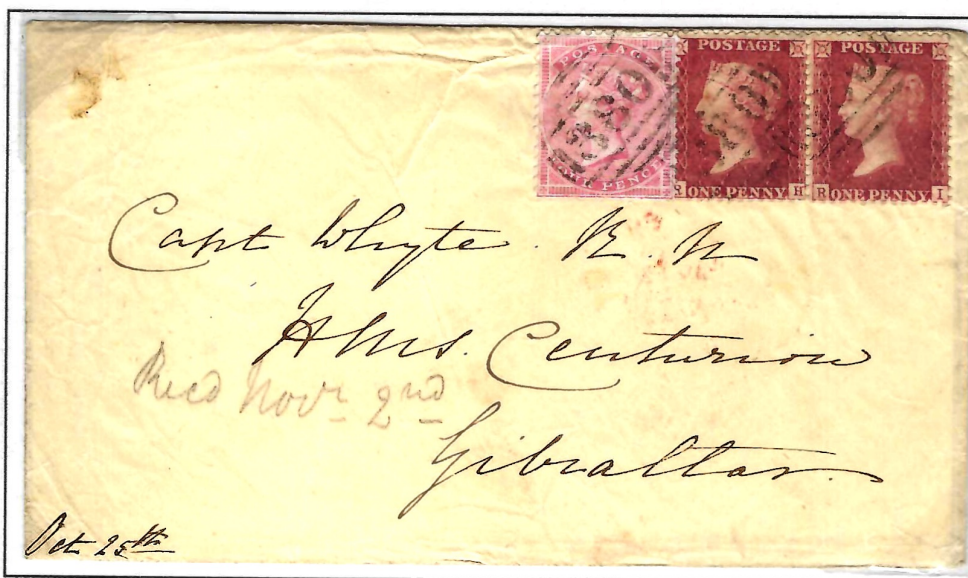 POSTAGE POSTAGE POSTAGE
PENCE
R ONE PENNY H R ONE PENNY I
Capt Whyte R. N
HMS. Centurion
Recd Novr 2nd
Gibraltar
Oct 25th